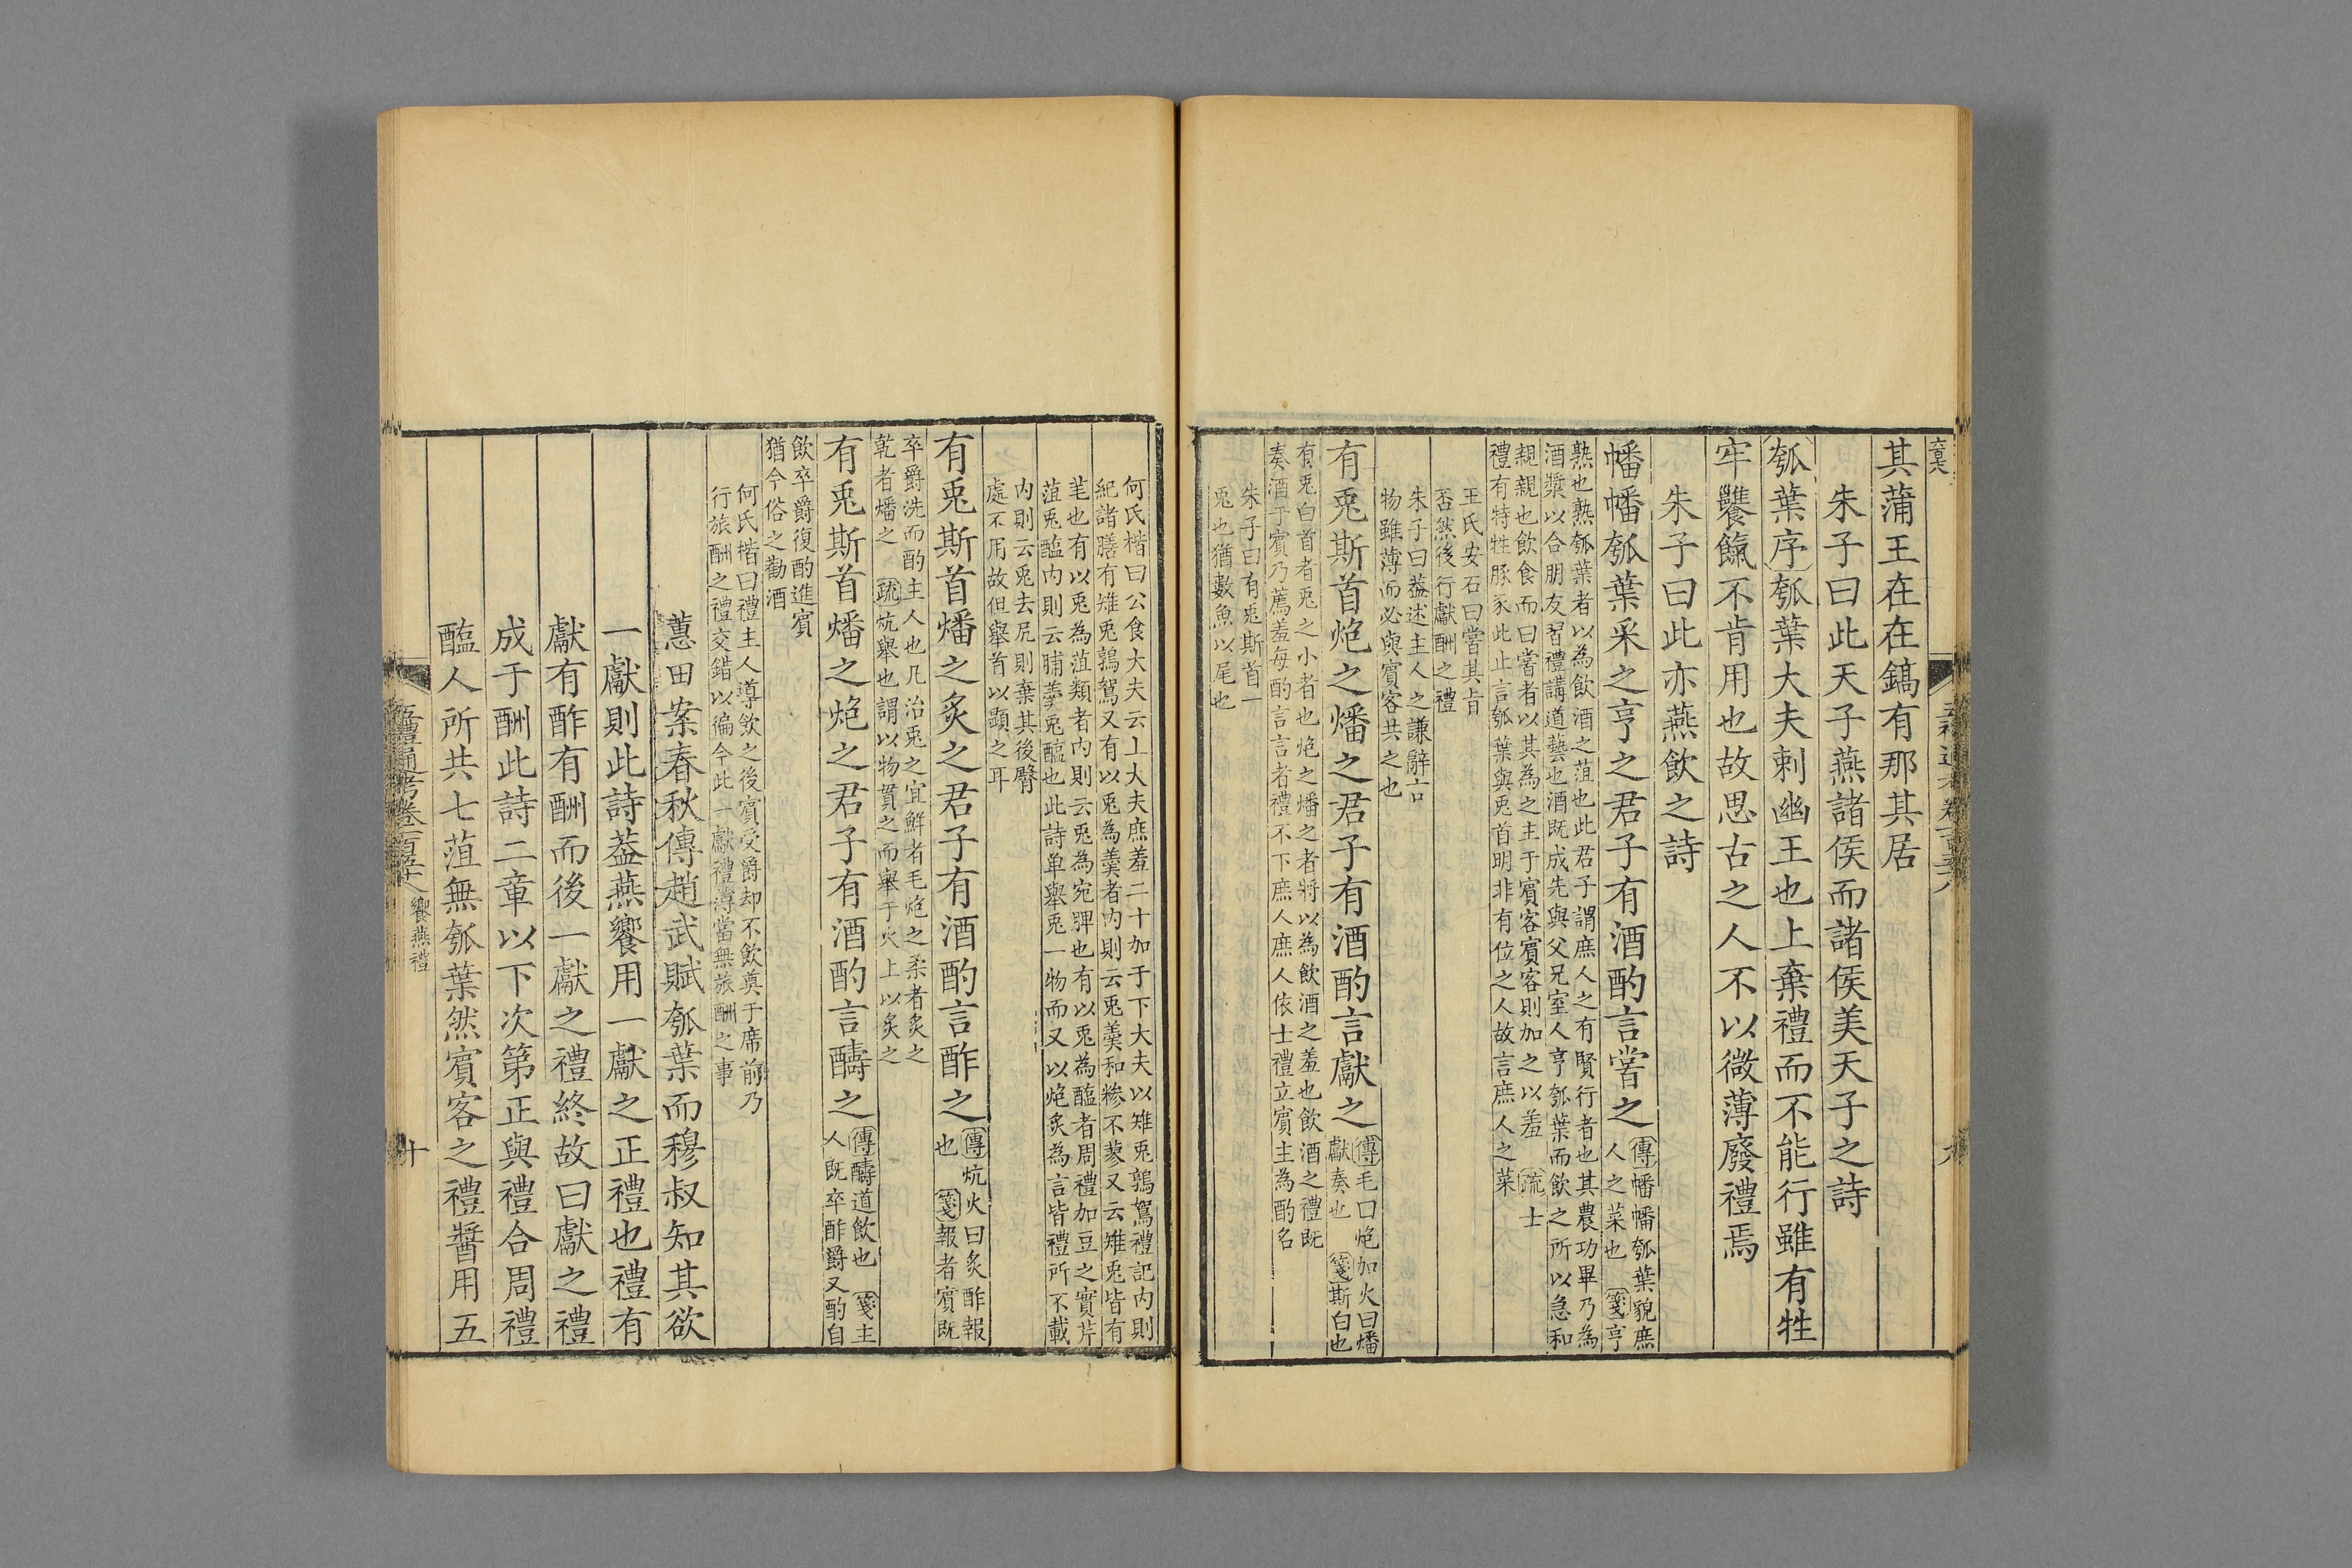 其蒲王在在鎬有那其居
朱子曰此天子燕諸侯而諸侯美天子之詩
瓠葉序瓠葉大夫刺幽王也上棄禮而不能行雖有牲
牢饔餼不肯用也故思古之人不以微薄廢禮焉
朱子曰此亦燕飲之詩
幡幡瓠葉采之亨之君子有酒酌言嘗之
傳幡幡瓠葉貌庶
人之菜也 箋亨
熟也熟瓠葉者以為飲酒之菹也此君子謂庶人之有賢行者也其農功畢乃為
酒漿以合朋友習禮講道藝也酒既成先與父兄室人亨瓠葉而飲之所以急和
親親也飲食而曰嘗者以其為之主于賓客賓客則加之以羞 疏士
禮有特牲豚豕此止言瓠葉與兎首明非有位之人故言庶人之菜
王氏安石曰嘗其旨
否然後行獻酬之禮
朱子曰葢述主人之謙辭言
物雖薄而必與賓客共之也
有兎斯首炮之燔之君子有酒酌言獻之
傳毛曰炮加火曰燔
獻奏也 箋斯白也
有兎白首者兎之小者也炮之燔之者將以為飲酒之羞也飲酒之禮既
奏酒于賓乃薦羞每酌言言者禮不下庶人庶人依士禮立賓主為酌名
朱子曰有兎斯首一
兎也猶數魚以尾也
何氏楷曰公食大夫云上大夫庶羞二十加于下大夫以雉兎鶉鴽禮記内則
紀諸膳有雉兎鶉鴽又有以兎為羹者内則云兎羹和糝不蓼又云雉兎皆有
芼也有以兎為菹類者内則云兎為宛脾也有以兎為醢者周禮加豆之實芹
菹兎醢内則云脯羹兎醢也此詩单舉兎一物而又以炮炙為言皆禮所不載
内則云兎去尻則棄其後臀
處不用故但舉首以顯之耳
有兎斯首燔之炙之君子有酒酌言酢之
傳炕火曰炙酢報
也 箋報者賓既
卒爵洗而酌主人也凡治兎之宜鮮者毛炮之柔者炙之
乾者燔之 疏炕舉也謂以物貫之而舉于火上以炙之
有兎斯首燔之炮之君子有酒酌言醻之
傳醻道飲也 箋主
人既卒酢爵又酌自
飲卒爵復酌進賓
猶今俗之勸酒
何氏楷曰禮主人導飲之後賓受爵却不飲奠于席前乃
行旅酬之禮交錯以徧今此一獻禮薄當無旅酬之事
蕙田案春秋傳趙武賦瓠葉而穆叔知其欲
一獻則此詩葢燕饗用一獻之正禮也禮有
獻有酢有酬而後一獻之禮終故曰獻之禮
成于酬此詩二章以下次第正與禮合周禮
醢人所共七菹無瓠葉然賓客之禮醬用五
饗燕禮
十